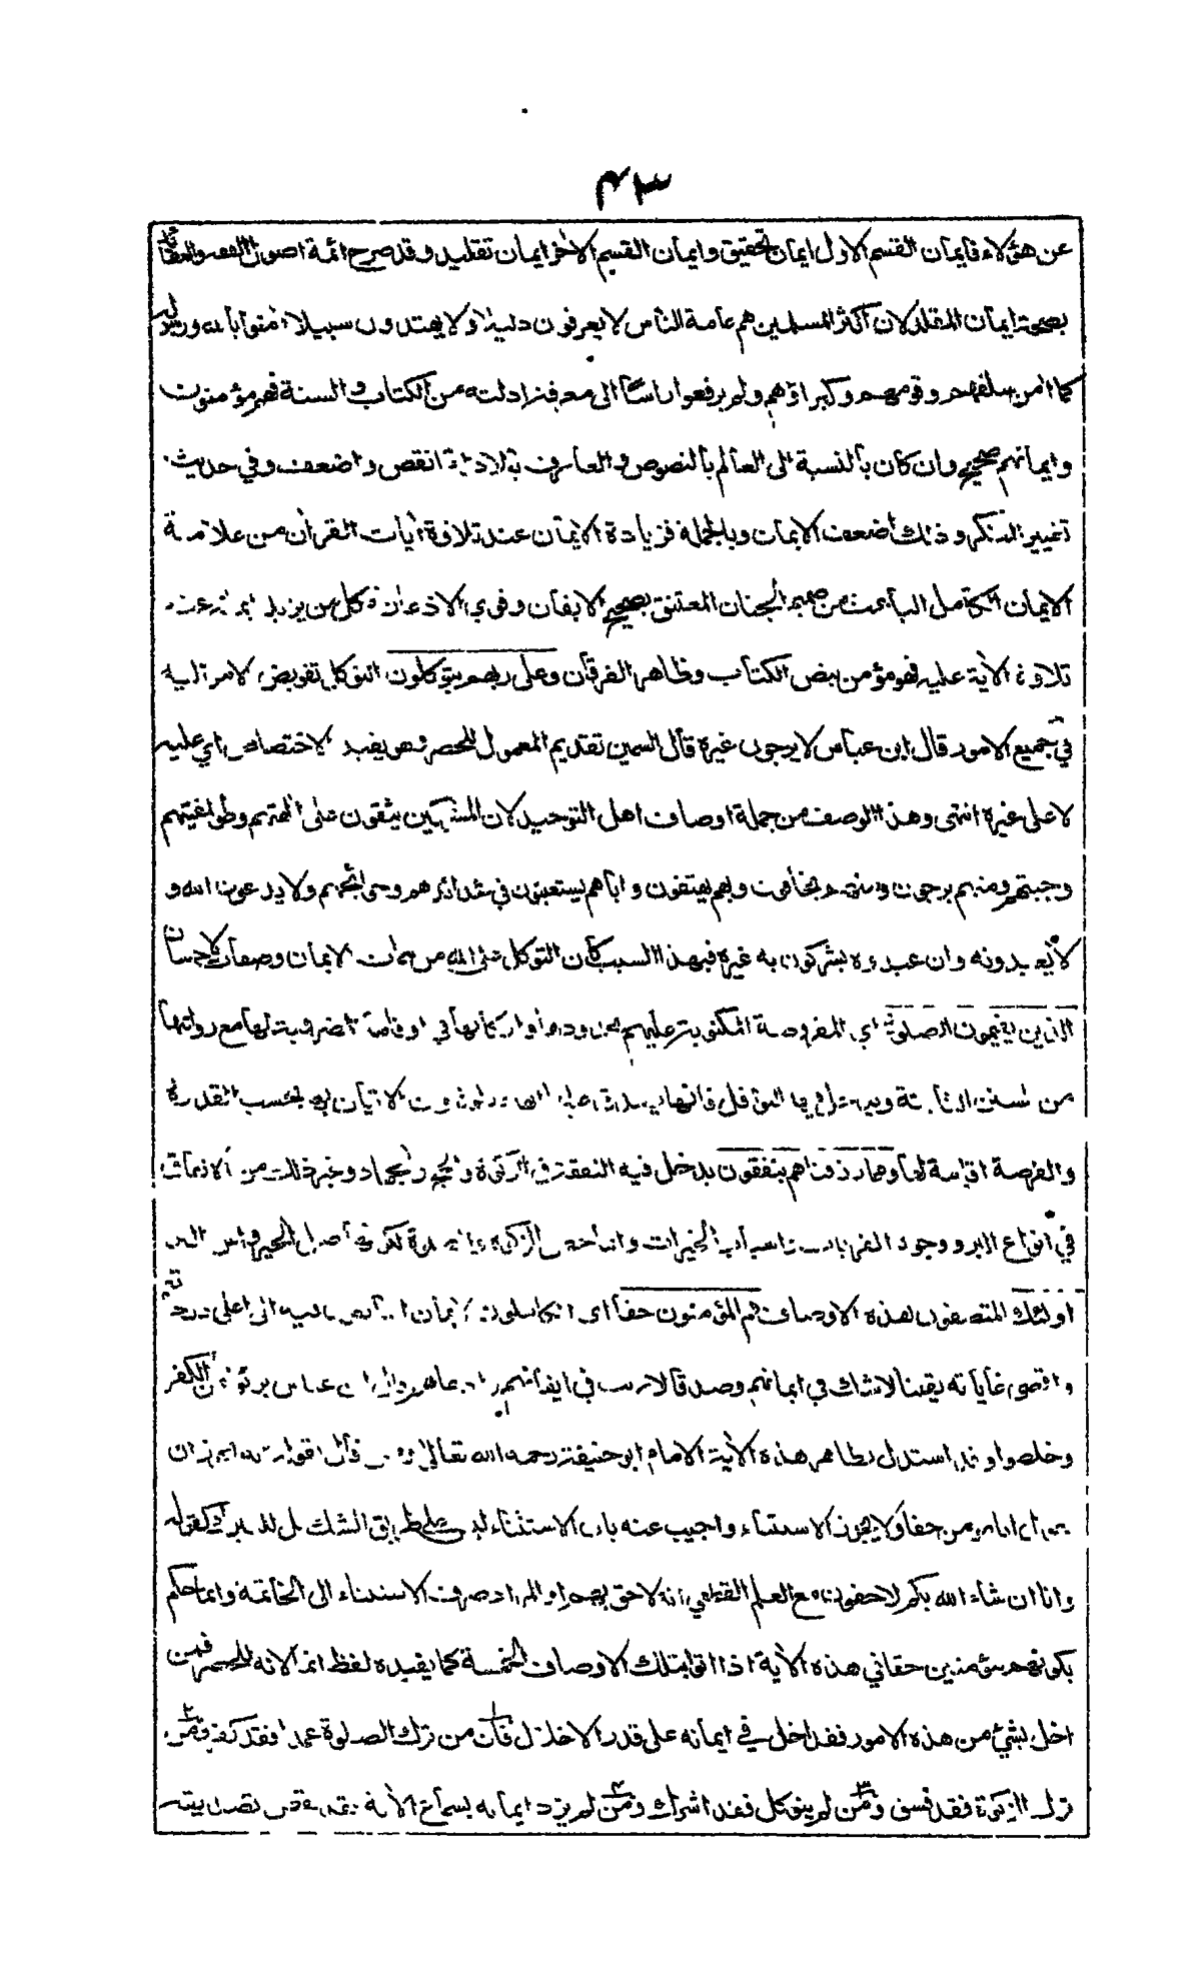 ۴۳
عن هؤلاء فايمان القسم الاول ايمان تحقيق وايمان القسم الاخر ايمان تقليد وقد صرح ائمة اصول الفقه والعقائد
بصحة ايمان المقلد لان أكثر المسلمين هم عامة الناس لا يعرفون دليلا ولا يهتدون سبيلا امنوا بالله ورسله
كما امن سلفهم وقومهم وكبراؤهم ولم يرفعوا راسًا الى معرفة ادلته من الكتاب والسنة فهم مؤمنون
وايمانهم صحيح وان كان بالنسبة الى العالم بالنصوص والعارف بالادلة انقص واضعف وفي حديث
تغيير المنكر وذلك أضعف الايمان وبالجملة فزيادة الايمان عند تلاوة ايات القران من علامة
الايمان الكامل الباعث من صميم الجنان المعتنق بصحيح الايقان وقوي الاذعان فكل من يزيد ايمانه عند
تلاوة الأية عليه فهو مؤمن بنص الكتاب وظاهر الفرقان وعلى ربهم يتوكلون التوكل تفويض الامر اليه
في جميع الامور قال ابن عباس لا يرجون غيره قال السمين تقديم المعمول للحصر وهو يفيد الاختصاص اي عليه
لا على غيره انتهى وهذا الوصف من جملة اوصاف اهل التوحيد لان المشركين يثقون على الهتهم وطواغيتهم
وجبتهم ومنهم يرجون ومنهم يخافون وبهم يهتفون واياهم يستعينون في شدائدهم وحوائجهم ولا يدعون الله و
لا يعبدونه وان عبدوه يشركون به غيره فبهذا السبب كان التوكل على الله من صفات الايمان وصفات الاحسان
الذين يقيمون الصلوة اي المفروضة المكتوبة عليهم بحدودها واركانها في اوقاتها المضروبة لها مع رواتبها
من السنن الثابتة ويدخل فيها النوافل فانها الاتيان بها بحسب القدرة
والفرصة اقامة لها ومما رزقناهم ينفقون يدخل فيه النفقة في الزكوة والحج والجهاد وغير ذلك من الانفاق
في انواع البر ووجوه القربات واسباب الخيرات وانما خص الزكوة اصل الخير
اولئك المتصفون بهذه الاوصاف هم المؤمنون حقا اى الكاملون الايمان الى اعلى درجاته
واقصى غاياته يقينا لا شك في ايمانهم وصدقا لا ريب في ايقانهم ابن عباس برئوا من الكفر
وخلصوا وقد استدل بظاهر هذه الأية الامام ابو حنيفة رحمه الله تعالى
حقا ولا يجوز الاستثناء واجيب عنه بان الاستثناء ليس على طريق الشك بل للتبرك كقوله
وانا ان شاء الله بكم لاحقون مع العلم القطعي انه لاحق بهم او المراد صرف الاستثناء الى الخاتمة وانما حكم
بكونهم مؤمنين حقا في هذه الأية اذا اتوا بتلك الاوصاف الخمسة كما يفيده لفظ انما لانه للحصر فمن
اخل بشئ من هذه الامور فقد اخل في ايمانه على قدر الاخلال فان من ترك الصلوة عمدا فقد كفر ومن
ترك الزكوة فقد فسق ومن لم يتوكل فقد اشرك ومن لم يزد ايمانه بسماع الأية فقد نقص تصديقه